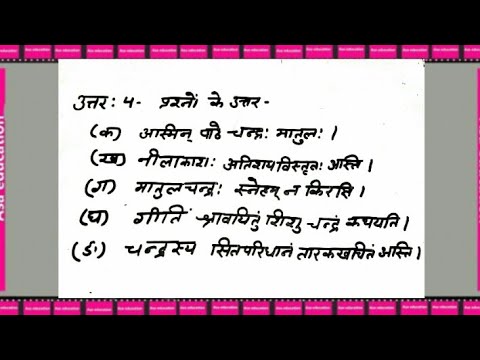 उत्तर: 4- प्रश्नों के उत्तर -
(क) अस्मिन् पाठे चन्द्रः मातुलः ।
(ख) नीलाकाशः अतिशयविस्तृतः अस्ति ।
(ग) मातुलचन्द्रः स्नेहम् न किरसि ।
(घ) गीतिं श्रावयितुं शिशु चन्द्रं कथयति ।
(ङ) चन्द्रस्य सितपरिधानं तारकखचितं अस्ति ।
Asa education